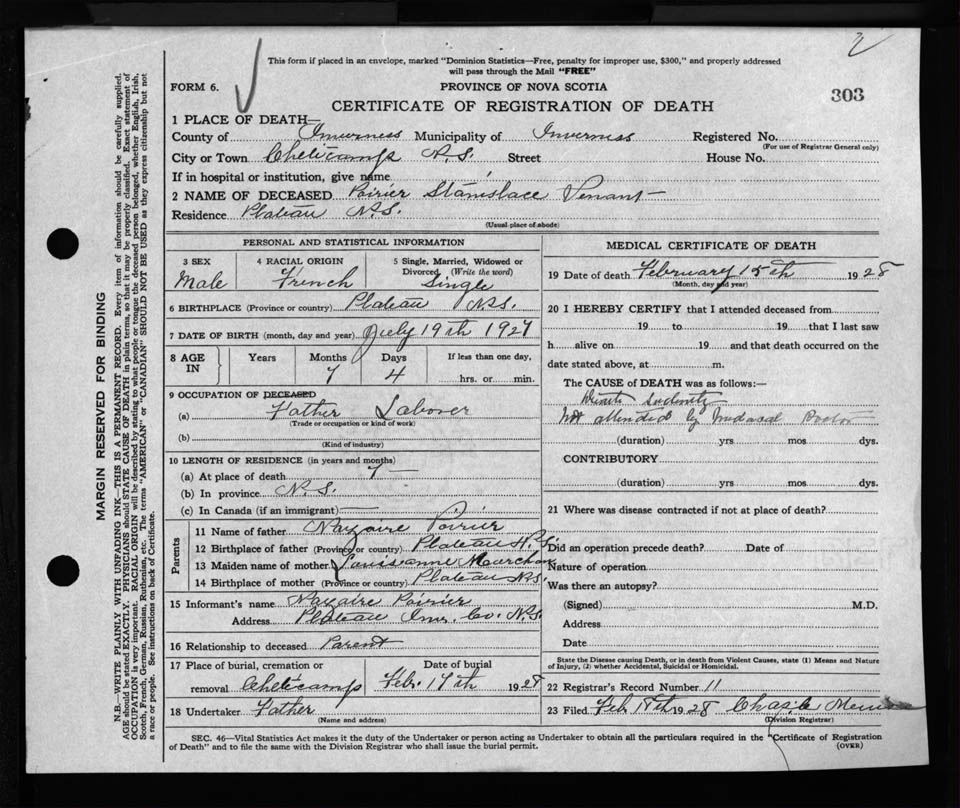 2
This form if placed in an envelope, marked "Dominion Statistics—Free, penalty for improper use, $300," and properly addressed
will pass through the Mail "FREE"
FORM 6.
PROVINCE OF NOVA SCOTIA
303
CERTIFICATE OF REGISTRATION OF DEATH
1 PLACE OF DEATH—
County of Inverness Municipality of Inverness Registered No.
(For use of Registrar General only)
City or Town Cheticamp N.S. Street House No.
If in hospital or institution, give name
2 NAME OF DECEASED Poirier Stanislace
Residence Plateau N.S.
(Usual place of abode)
PERSONAL AND STATISTICAL INFORMATION
3 SEX 4 RACIAL ORIGIN 5 Single, Married, Widowed or
Divorced (Write the word)
Male French Single
6 BIRTHPLACE (Province or country) Plateau N.S.
7 DATE OF BIRTH (month, day and year) July 19th 1927
8 AGE IN Years Months Days If less than one day,
7 4 hrs. or min.
9 OCCUPATION OF DECEASED
(a) Father Laborer
(Trade or occupation or kind of work)
(b)
(Kind of industry)
10 LENGTH OF RESIDENCE (in years and months)
(a) At place of death 7
(b) In province N.S.
(c) In Canada (if an immigrant)
Parents
11 Name of father Nazaire Poirier
12 Birthplace of father (Province or country) Plateau N.S.
13 Maiden name of mother Louisianne
14 Birthplace of mother (Province or country) Plateau N.S.
15 Informant's name Nazaire Poirier
Address Plateau Inv. Co. N.S.
16 Relationship to deceased Parent
17 Place of burial, cremation or Date of burial
removal Cheticamp Feb. 17th 1928
18 Undertaker Father
(Name and address)
MEDICAL CERTIFICATE OF DEATH
19 Date of death February 15th 1928
(Month, day and year)
20 I HEREBY CERTIFY that I attended deceased from
19 to 19 that I last saw
h alive on 19 and that death occurred on the
date stated above, at m.
The CAUSE of DEATH was as follows:—
Not attended by medical Doctor
(duration) yrs mos dys.
CONTRIBUTORY
(duration) yrs. mos. dys.
21 Where was disease contracted if not at place of death?
Did an operation precede death? Date of
Nature of operation
Was there an autopsy?
(Signed) M.D.
Address
Date
State the Disease causing Death, or in death from Violent Causes, state (1) Means and Nature
of Injury, (2) whether Accidental, Suicidal or Homicidal.
22 Registrar's Record Number 11
23 Filed Feb 18th 1928
(Division Registrar)
SEC. 46—Vital Statistics Act makes it the duty of the Undertaker or person acting as Undertaker to obtain all the particulars required in the "Certificate of Registration
of Death" and to file the same with the Division Registrar who shall issue the burial permit.
(OVER)
MARGIN RESERVED FOR BINDING
N.B.—WRITE PLAINLY WITH UNFADING INK—THIS IS A PERMANENT RECORD. Every item of information should be carefully supplied.
AGE should be stated EXACTLY. PHYSICIANS should STATE CAUSE OF DEATH in plain terms, so that it may be properly classified. Exact statement of
OCCUPATION is very important. RACIAL ORIGIN will be described by stating to what people or tongue the deceased person belonged, whether English, Irish,
Scotch, French, German, Russian, Ruthenian, etc. The terms "AMERICAN" or "CANADIAN" SHOULD NOT BE USED as they express citizenship but not
a race or people. See instructions on back of Certificate.